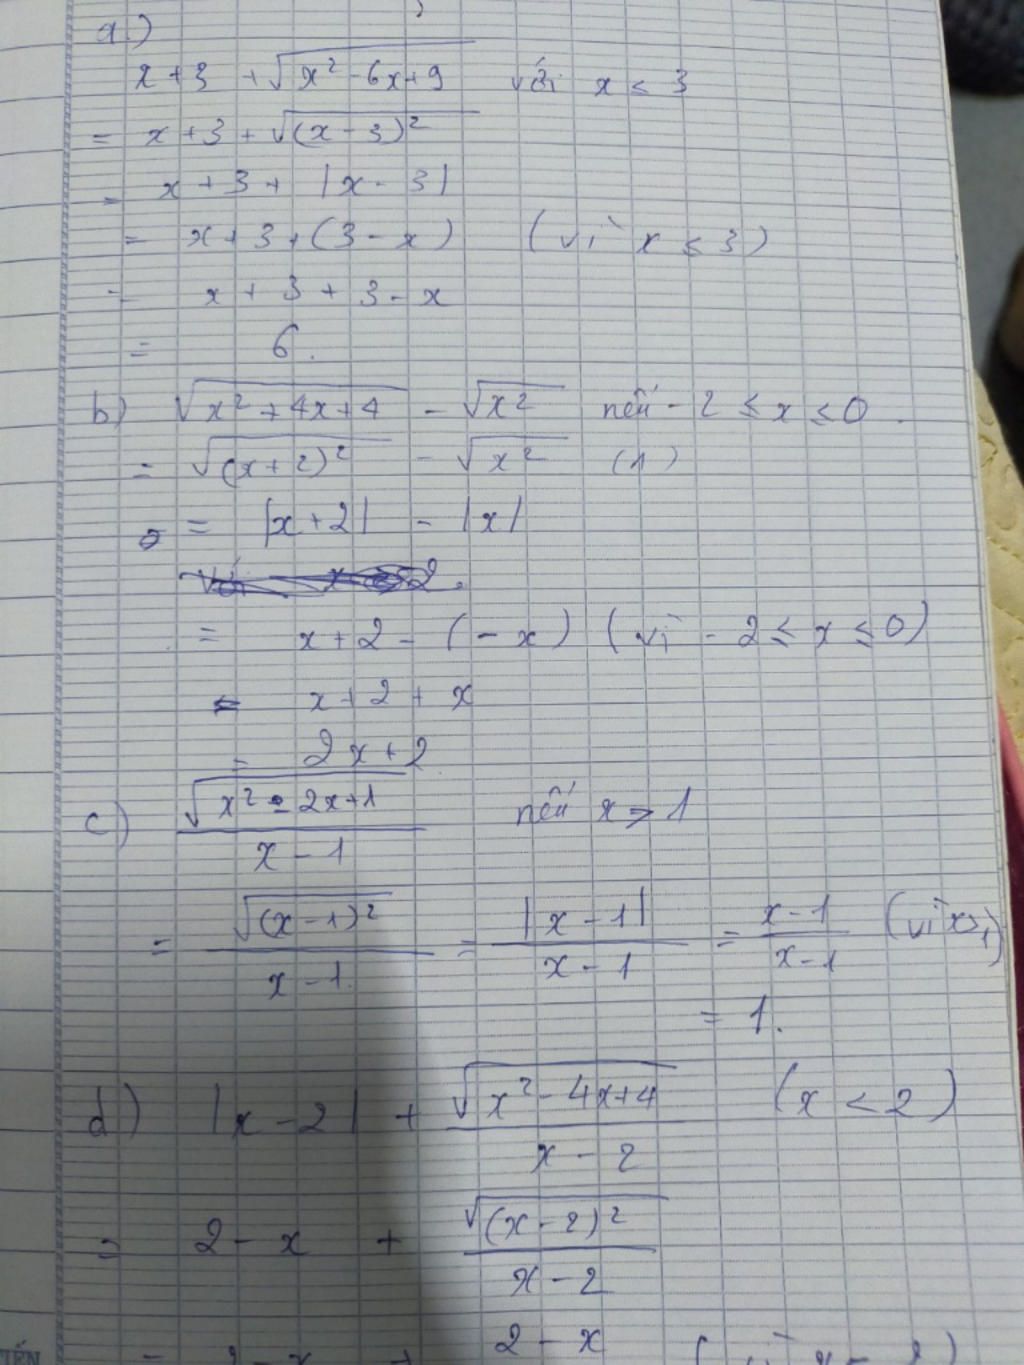 a.)
x + 3 + √(x² - 6x + 9) với x ≤ 3
= x + 3 + √(x - 3)²
= x + 3 + |x - 3|
= x + 3 + (3 - x) (vì x ≤ 3)
= x + 3 + 3 - x
= 6.
b) √(x² + 4x + 4) - √x² nếu - 2 ≤ x ≤ 0.
= √(x + 2)² - √x² (1)
= |x + 2| - |x|
= x + 2 - (- x) (vì - 2 ≤ x ≤ 0)
= x + 2 + x
= 2x + 2
c) √(x² - 2x + 1) / (x - 1) nếu x > 1
= √(x - 1)² / (x - 1) = |x - 1| / (x - 1) = (x - 1) / (x - 1) (vì x > 1)
= 1.
d) |x - 2| + √(x² - 4x + 4) / (x - 2) (x < 2)
= 2 - x + √(x - 2)² / (x - 2)
= 2 - x + 2 - x (vì x < 2)